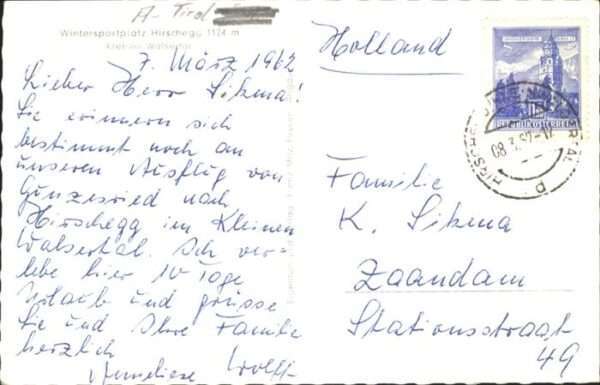 A - Tirol
Wintersportplatz Hirschegg 1124 m
Kleines Walsertal
7. März 1962
Lieber Herr Sikma!
Sie erinnern sich
bestimmt noch an
unseren Ausflug von
Gunzesried nach
Hirschegg im Kleinen
Walsertal. Ich ver-
lebe hier 10 Tage
Urlaub und grüsse
Sie und Ihre Familie
herzlich
Anneliese Wolff
Holland
REPUBLIK ÖSTERREICH
08.3.62-17
Familie
K. Sikma
Zaandam
Stationsstraat
49